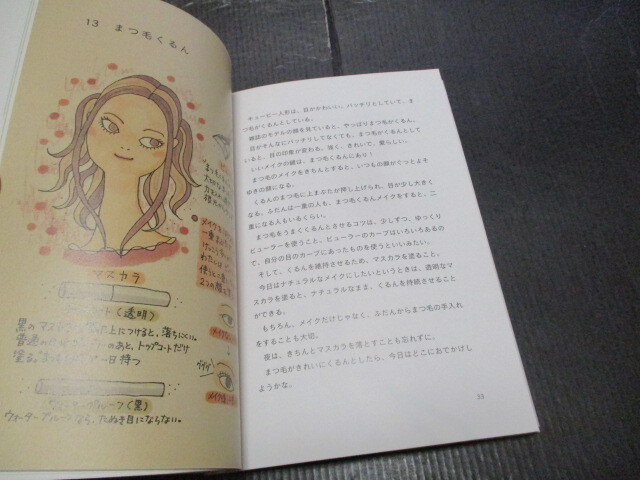 13 まつ毛くるん
マスカラ
(透明)
黒の
上につけると、落ちにくい。
のあと、トップコートだけ
一日持つ
(黒)
ウォータープルーフなら、たぬき目にならない。
キューピー人形は、目がかわいい。パッチリとしていて、ま
つ毛がくるんとしている。
雑誌のモデルの顔を見ていると、やっぱりまつ毛がくるん。
目がそんなにパッチリしてなくても、まつ毛がくるんとして
いると、目の印象が変わる。強く、きれいで、愛らしい。
いいメイクの鍵は、まつ毛くるんにあり!
まつ毛のメイクをきちんとすると、いつもの顔がぐっとよそ
ゆきの顔になる。
くるんのまつ毛に上まぶたが押し上げられ、目が少し大きく
なる。ふだんは一重の人も、まつ毛くるんメイクをすると、二
重になる人もいるくらい。
まつ毛をうまくくるんとさせるコツは、少しずつ、ゆっくり
ビューラーを使うこと。ビューラーのカーブはいろいろあるの
で、自分の目のカーブにあったものを使うといいみたい。
そして、くるんを維持させるため、マスカラを塗ること。
今日はナチュラルなメイクにしたいというときは、透明なマ
スカラを塗ると、ナチュラルなまま、くるんを持続させること
ができる。
もちろん、メイクだけじゃなく、ふだんからまつ毛の手入れ
をすることも大切。
夜は、きちんとマスカラを落とすことも忘れずに。
まつ毛がきれいにくるんとしたら、今日はどこにおでかけし
ようかな。
33